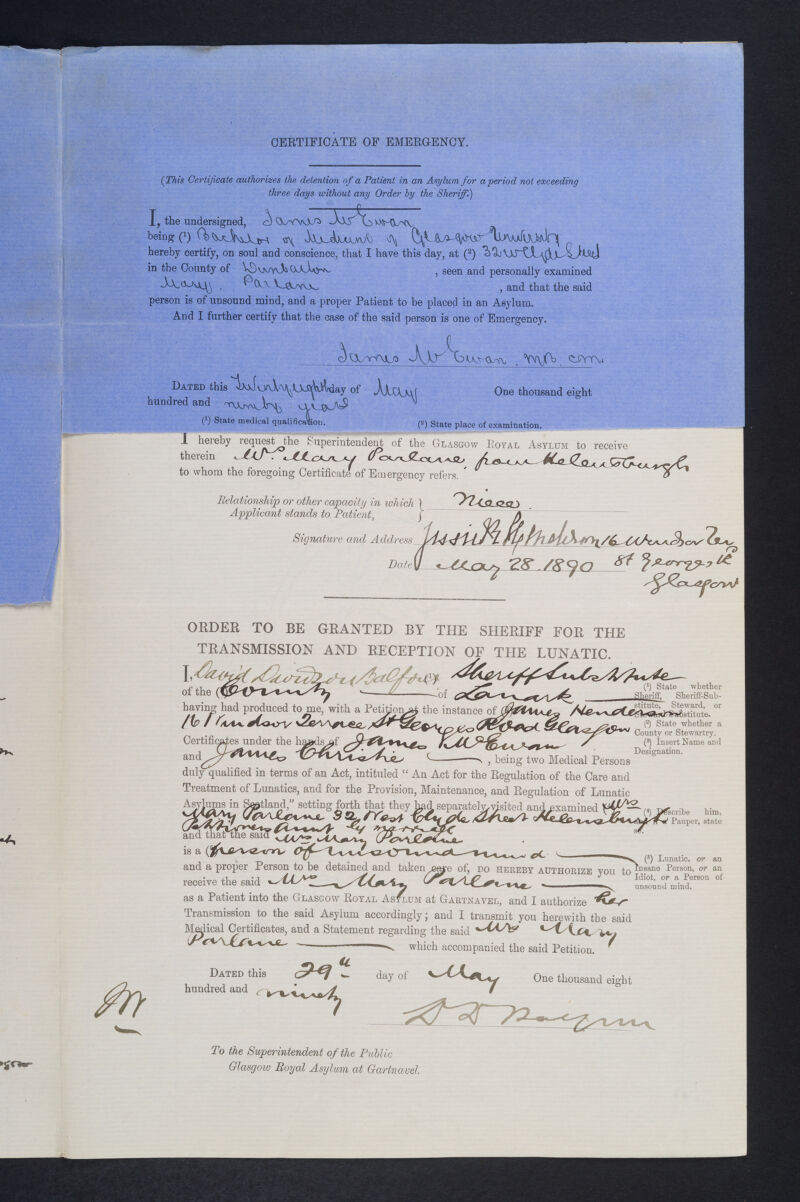 CERTIFICATE OF EMERGENCY.
(This Certificate authorizes the detention of a Patient in an Asylum for a period not exceeding
three days without any Order by the Sheriff.)
I, the undersigned, James McEwan
being (¹) Bachelor of Medicine of Glasgow University
hereby certify, on soul and conscience, that I have this day, at (²) 32 W Clyde Street
in the County of Dunbarton , seen and personally examined
Mary Parlane , and that the said
person is of unsound mind, and a proper Patient to be placed in an Asylum.
And I further certify that the case of the said person is one of Emergency.
James McEwan. M.B. C.M.
DATED this Twentyeighth day of May One thousand eight
hundred and ninety years
(¹) State medical qualification. (²) State place of examination.
I hereby request the Superintendent of the GLASGOW ROYAL ASYLUM to receive
therein Mrs. Mary Parlane, from Helensburgh
to whom the foregoing Certificate of Emergency refers.
Relationship or other capacity in which
Applicant stands to Patient, } Niece.
Signature and Address Jessie R Henderson 16 Windsor Terr
St Georges Rd
Date May 28. 1890
Glasgow
ORDER TO BE GRANTED BY THE SHERIFF FOR THE
TRANSMISSION AND RECEPTION OF THE LUNATIC.
I, David Davidson Balfour (¹) Sheriff Substitute
of the (²) County of Lanark
having had produced to me, with a Petition at the instance of (³) James Henderson
16 Windsor Terrace St Georges Road Glasgow
Certificates under the hands of James McEwan
and James Christie , being two Medical Persons
duly qualified in terms of an Act, intituled “An Act for the Regulation of the Care and
Treatment of Lunatics, and for the Provision, Maintenance, and Regulation of Lunatic
Asylums in Scotland,” setting forth that they had separately visited and examined (⁴) Mrs
Mary Parlane 32 West Clyde Street Helensburgh
Petitioners Aunt by marriage
and that the said Mrs Mary Parlane
is a (⁵) person of unsound mind
and a proper Person to be detained and taken care of, DO HEREBY AUTHORIZE you to
receive the said Mrs Mary Parlane
as a Patient into the GLASGOW ROYAL ASYLUM at GARTNAVEL, and I authorize her
Transmission to the said Asylum accordingly; and I transmit you herewith the said
Medical Certificates, and a Statement regarding the said Mrs Mary
Parlane which accompanied the said Petition.
DATED this 29th day of May One thousand eight
hundred and ninety
D D Balfour
To the Superintendent of the Public
Glasgow Royal Asylum at Gartnavel.
(¹) State whether
Sheriff, Sheriff-Sub-
stitute, Steward, or
Substitute.
(²) State whether a
County or Stewartry.
(³) Insert Name and
Designation.
(⁴) Describe him,
Pauper, state
so.
(⁵) Lunatic, or an
Insane Person, or an
Idiot, or a Person of
unsound mind.